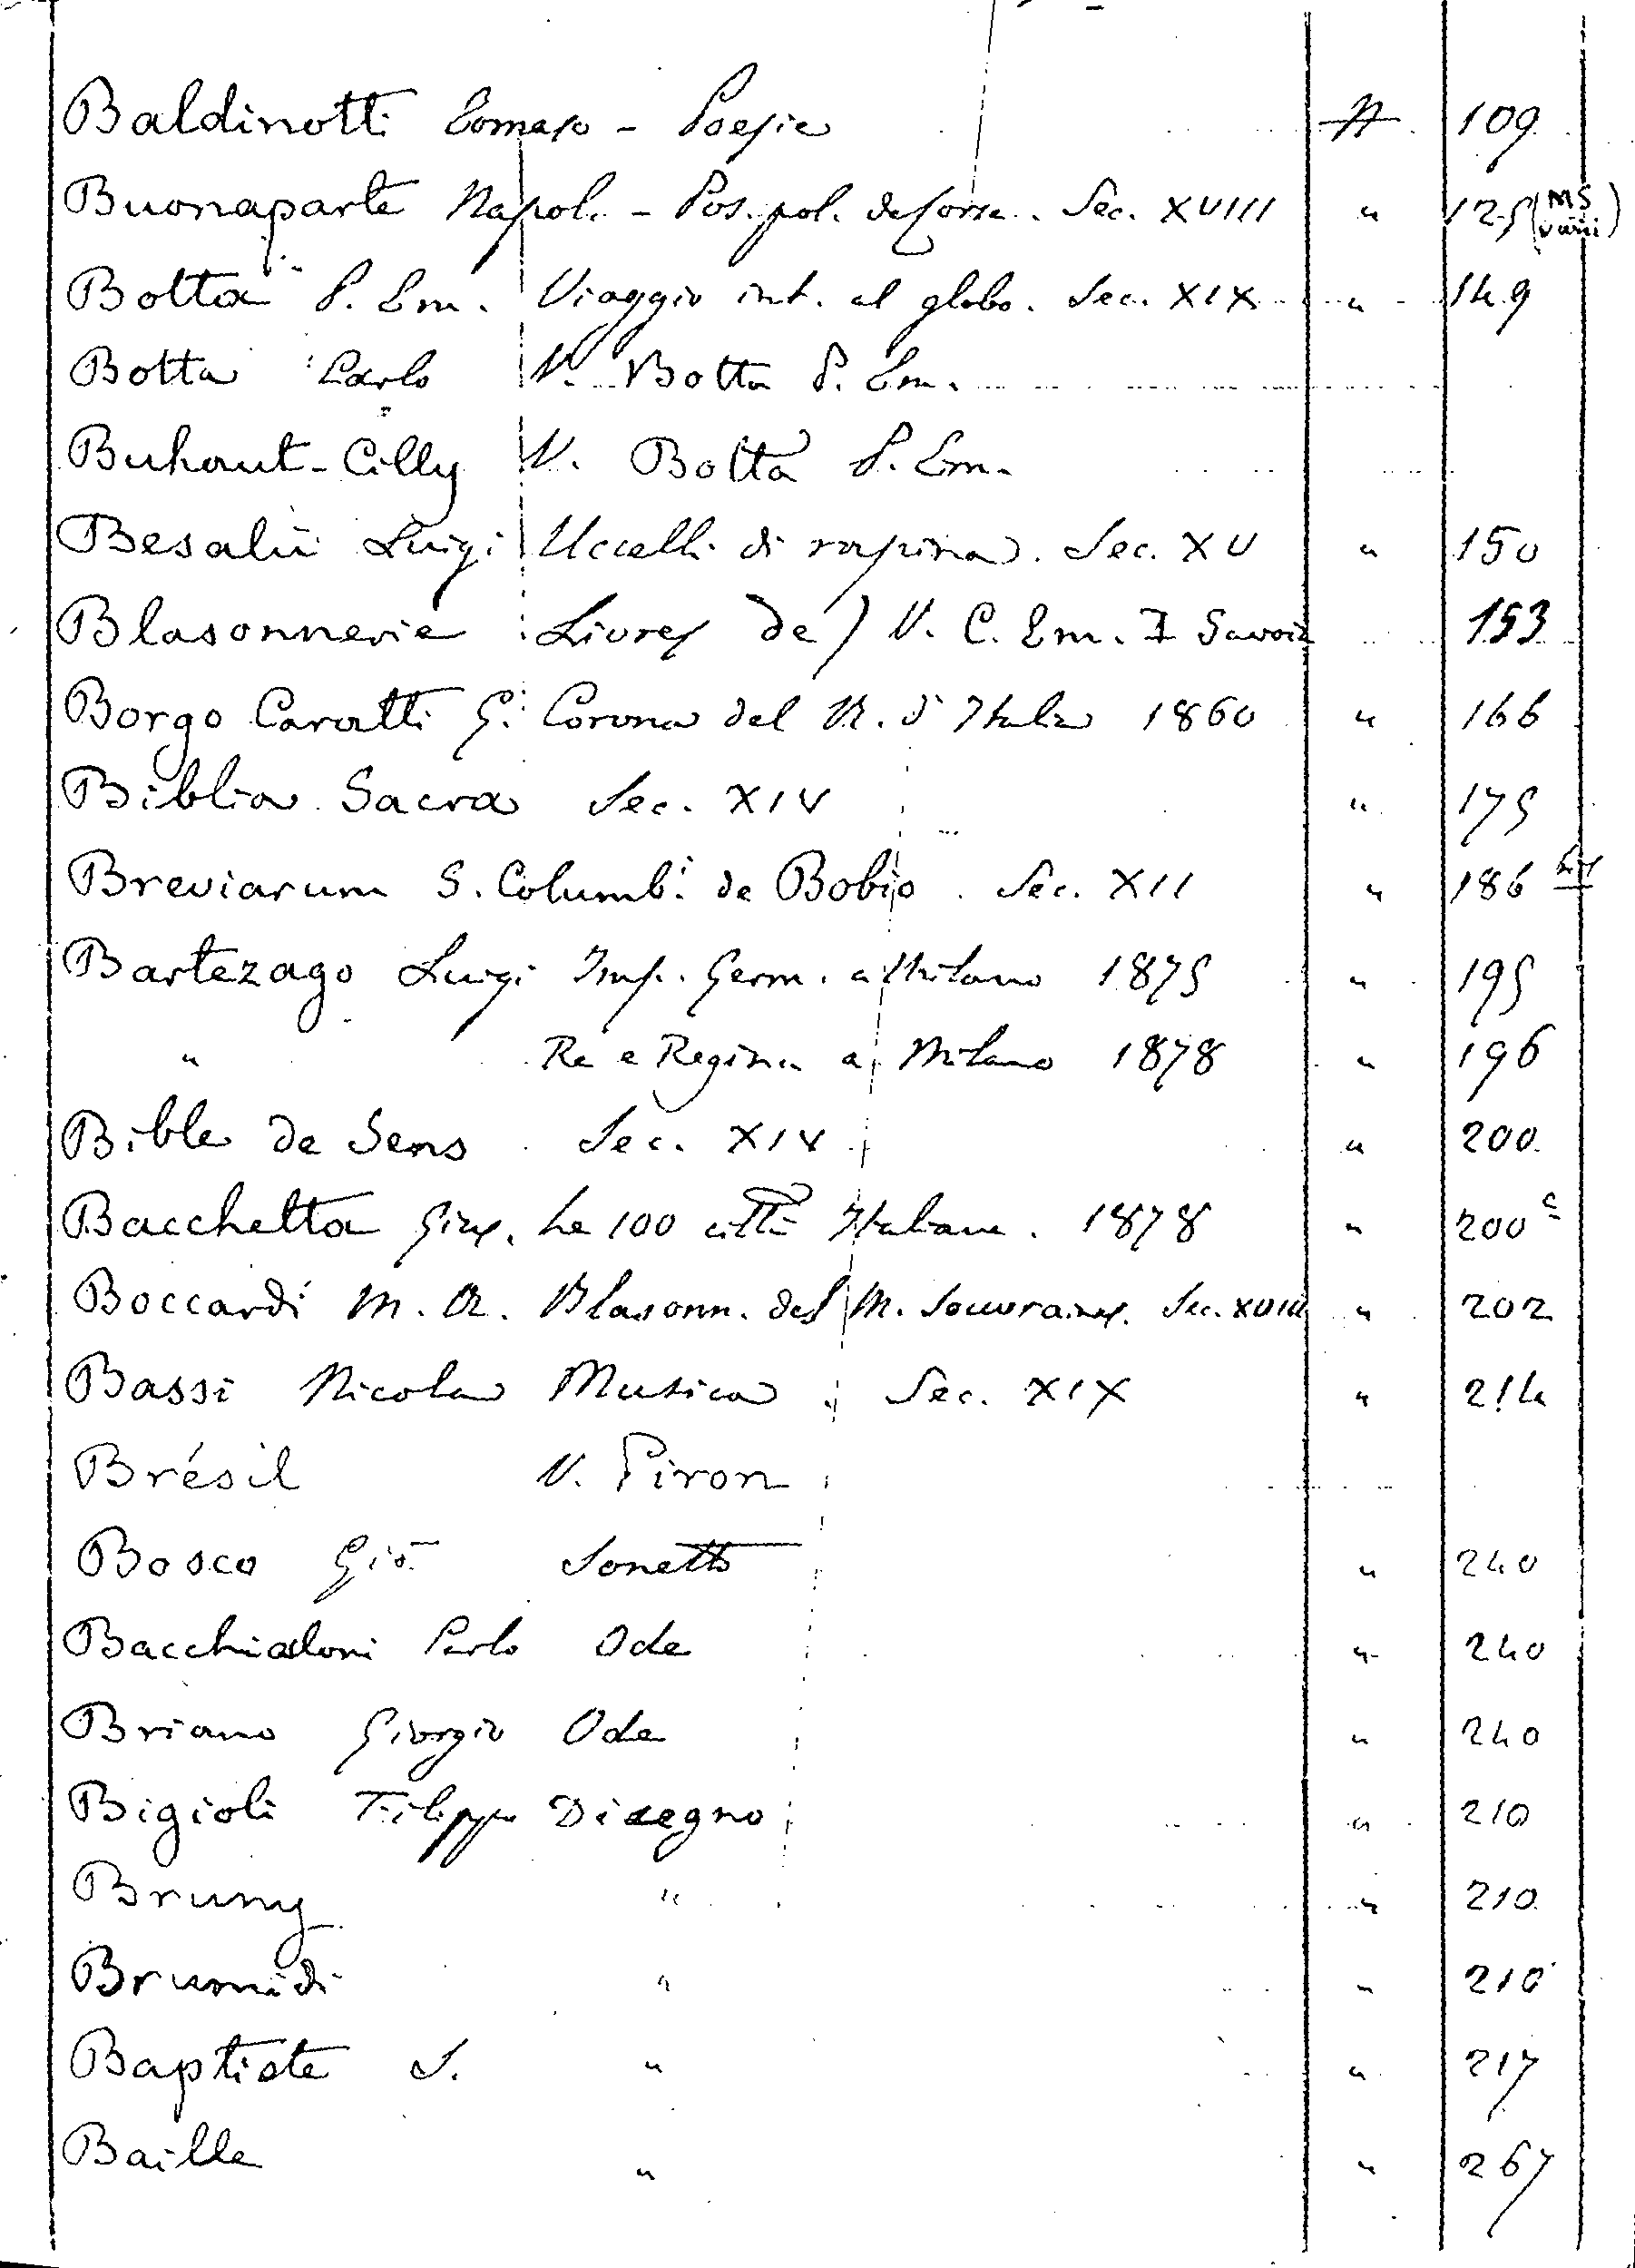 Baldinotti Tomaso - Poesie 109
Buonaparte Napol. - Pos. pol. de Corse. Sec. XVIII " 125 (MS varii)
Botta P. Em. Viaggio int. al globo. Sec. XIX " 149
Botta Carlo V. Botta P. Em.
Buhaut-Cilly V. Botta P. Em.
Besalù Luigi Uccelli di rapina. Sec. XV " 150
Blasonnerie Livres de) V. C. Em. I Savoia 153
Borgo Caratti G. Corona del R. d'Italia 1860 " 166
Biblia Sacra Sec. XIV " 175
Breviarum S. Columb. de Bobio. Sec. XII " 186 bis
Bartezago Luigi Imp. Germ. a Milano 1875 " 195
" Re e Regina a Milano 1878 " 196
Bible de Sens Sec. XIV " 200
Bacchetta Gius. Le 100 città Italiane. 1878 " 200 c
Boccardi M. R. Blasonn. des M. Souveraines. Sec. XVIII " 202
Bassi Nicola Musica. Sec. XIX " 214
Brésil V. Piron
Bosco Gio. Sonetto " 240
Bacchialoni Carlo Ode " 240
Briano Giorgio Ode " 240
Bigioli Filippo Disegno " 210
Bruny " " 210
Brumidi " " 210
Baptiste S. " " 217
Baille " " 267